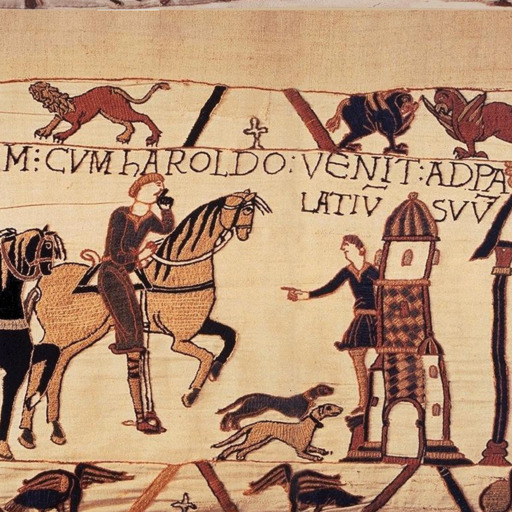 M : CVM hAROLDO : VENIT : AD PA
LATIV̄ SVV̄